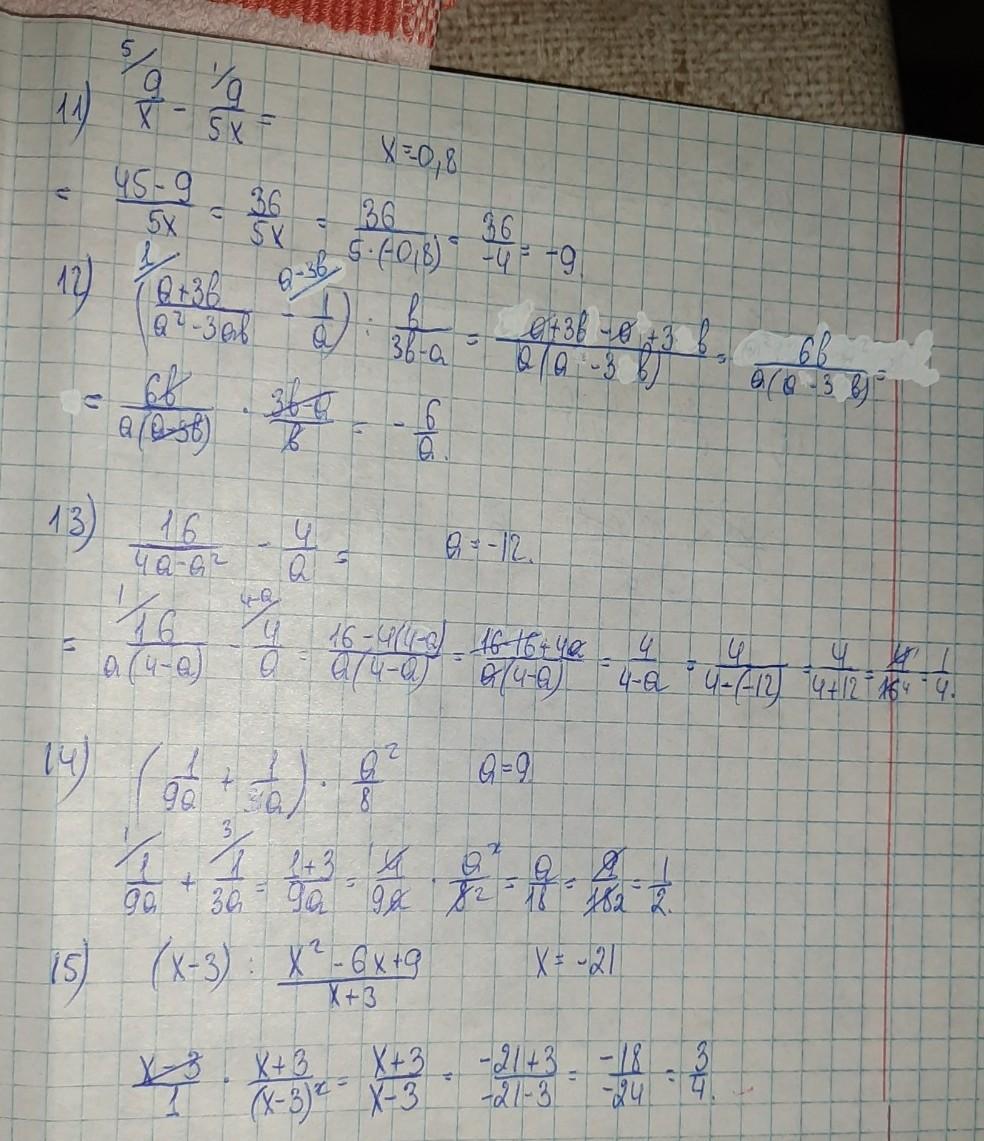 11) 5/ 9/x - 1/ 9/5x =
x=-0,8
= (45-9)/5x = 36/5x = 36/(5·(-0,8)) = 36/-4 = -9
12) ( 1/ (a+3b)/(a²-3ab) - a-3b/ 1/a ) : b/(3b-a) = (a+3b-a+3b)/(a(a-3b)) = 6b/(a(a-3b)) =
= 6b/(a(a-3b)) · (3b-a)/b = - 6/a.
13) 16/(4a-a²) - 4/a = a=-12.
= 1/ 16/(a(4-a)) - 4-a/ 4/a = (16-4(4-a))/(a(4-a)) = (16-16+4a)/(a(4-a)) = 4/(4-a) = 4/(4-(-12)) = 4/(4+12) = 4¹/16₄ = 1/4.
14) ( 1/9a + 1/3a ) · a²/8 a=9
1/ 1/9a + 3/ 1/3a = (1+3)/9a = 4/9a · a²/8₂ = a/18 = 9/18₂ = 1/2.
15) (x-3) : (x²-6x+9)/(x+3) x=-21
(x-3)/1 · (x+3)/(x-3)² = (x+3)/(x-3) = (-21+3)/(-21-3) = -18/-24 = 3/4.